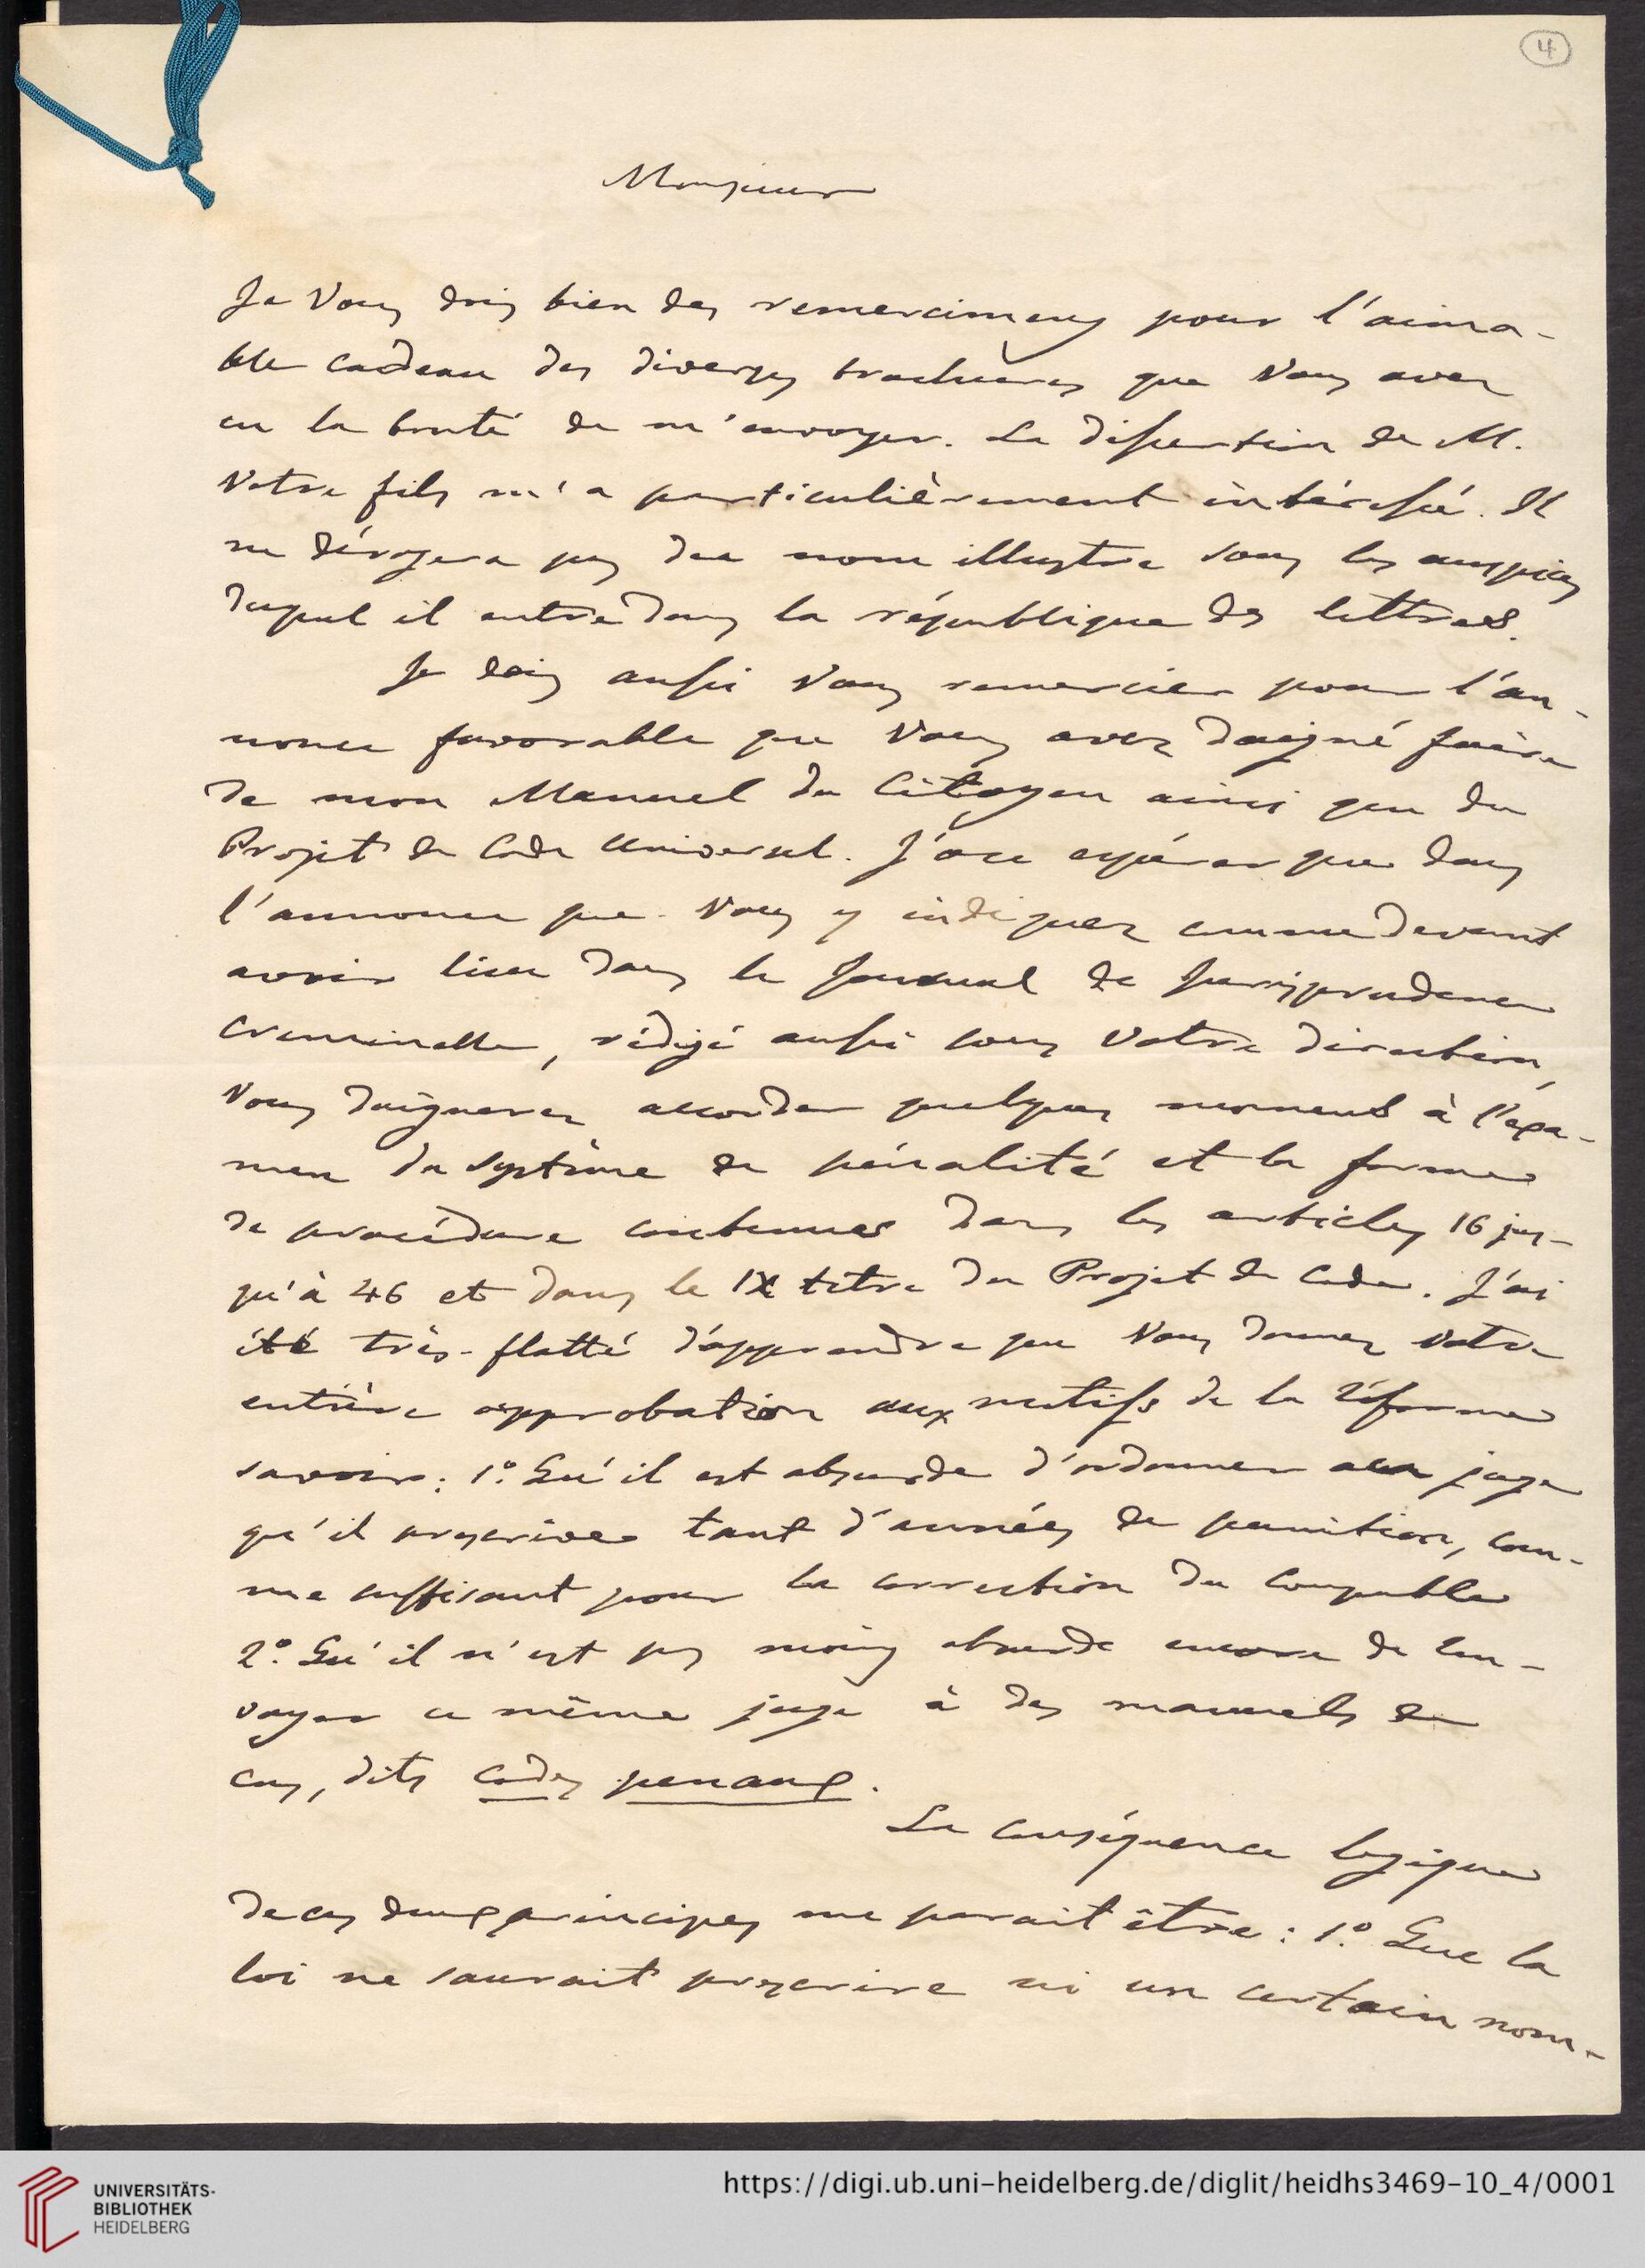 4
Monsieur
Je Vous dois bien des remercimens pour l'aima-
ble cadeau des diverses brochures que Vous avez
eu la bonté de m'envoyer. La dissertion de M.
Votre fils m'a particulièrement intéressé. Il
ne dérogera pas du nom illustre sous les auspices
duquel il entre dans la république des lettres.
Je dois aussi Vous remercier pour l'an-
nonce favorable que Vous avez daigné faire
de mon Manuel du Citoyen ainsi que du
Projet de Code Universel. J'ose espérer que dans
l'annonce que Vous y indiquez comme devant
avoir lieu dans le Journal de Jurisprudence
criminelle, rédigé aussi sous Votre direction,
Vous daignerez accorder quelques moments à l'exa-
men du système de pénalité et la forme
de procédure contenues dans les articles 16 jus-
qu'à 46 et dans le IX titre du Projet de Code. J'ai
été très-flatté d'apprendre que Vous donnez Votre
entière approbation aux motifs de la réforme
savoir: 1.º Qu'il est absurde d'ordonner au juge
qu'il prescrive tant d'années de punition, com-
me suffisant pour la correction du coupable
2.º Qu'il n'est pas moins absurde encore de ren-
voyer ce même juge à des manuels de
cas, dits codes penaux.
La conséquence logique
de ces deux principes me parait être: 1.º Que la
loi ne saurait prescrire ni un certain nom-
UNIVERSITÄTS-
BIBLIOTHEK
HEIDELBERG
https://digi.ub.uni-heidelberg.de/diglit/heidhs3469-10_4/0001